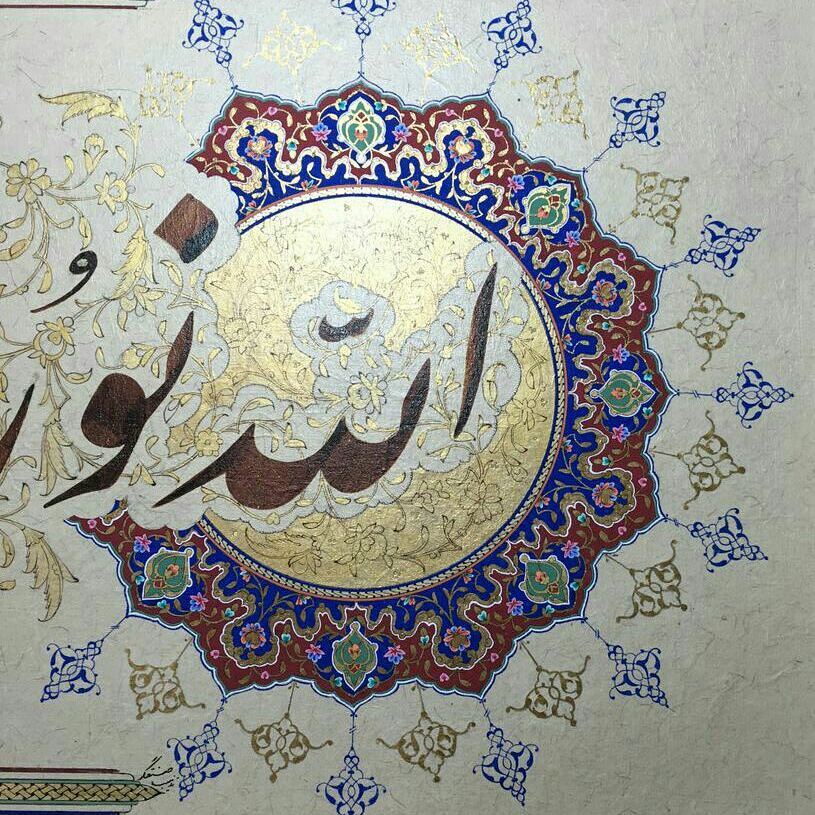 اللّه نُور